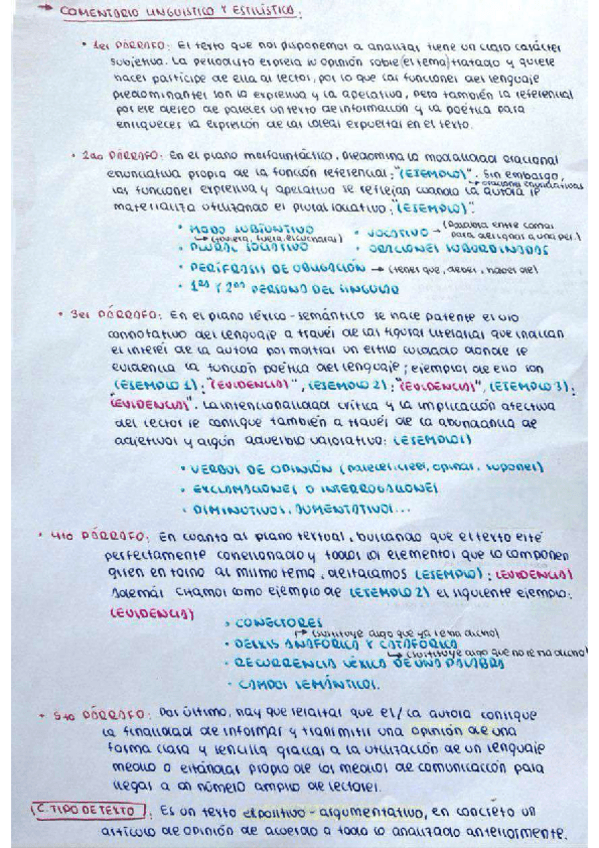 → COMENTARIO LINGÜISTICO Y ESTILÍSTICO:
• 1er PÁRRAFO: El texto que nos disponemos a analizar tiene un claro carácter
subjetivo. La periodista expresa su opinión sobre (el tema) tratado y quiere
hacer partícipe de ella al lector, por lo que las funciones del lenguaje
predominantes son la expresiva y la apelativa, pero también la referencial
por ese deseo de parecer un texto de información y la poética para
enriquecer la expresión de las ideas expuestas en el texto.
• 2do PÁRRAFO: En el plano morfosintáctico, predomina la modalidad oracional
enunciativa propia de la función referencial: "(EJEMPLO)". Sin embargo,
→ oraciones enunciativas
las funciones expresiva y apelativa se reflejan cuando la autora se
materializa utilizando el plural sociativo: "(EJEMPLO)".
• MODO SUBJUNTIVO
→ (tuviera, fuera, escuchara)
• VOCATIVO → (Palabra entre comas
para designar a una per.)
• PLURAL SOCIATIVO
• ORACIONES SUBORDINADAS
• PERÍFRASIS DE OBLIGACIÓN → (tener que, deber, haber de)
• 1ªs Y 2ªs PERSONA DEL SINGULAR
• 3er PÁRRAFO: En el plano léxico-semántico se hace patente el uso
connotativo del lenguaje a través de las figuras literarias que indican
el interés de la autora por mostrar un estilo cuidado donde se
evidencia la función poética del lenguaje; ejemplos de ello son
(EJEMPLO 1): "(EVIDENCIA)", (EJEMPLO 2): "(EVIDENCIA)", (EJEMPLO 3):
"(EVIDENCIA)". La intencionalidad crítica y la implicación afectiva
del lector se consigue también a través de la abundancia de
adjetivos y algún adverbio valorativo: (EJEMPLOS)
• VERBOS DE OPINIÓN (parecer, creer, opinar, suponer)
• EXCLAMACIONES O INTERROGACIONES
• DIMINUTIVOS, AUMENTATIVOS...
• 4to PÁRRAFO: En cuanto al plano textual, buscando que el texto esté
perfectamente conexionado y todos los elementos que lo componen
giren en torno al mismo tema, destacamos (EJEMPLO): (EVIDENCIA)
Además citamos como ejemplo de (EJEMPLO 2) el siguiente ejemplo:
(EVIDENCIA)
• CONECTORES
→ (sustituye algo que ya se ha dicho)
• DEIXIS ANAFÓRICA Y CATAFÓRICA
→ (sustituye algo que no se ha dicho)
• RECURRENCIA LÉXICA DE UNA PALABRA
• CAMPOS SEMÁNTICOS.
• 5to PÁRRAFO: Por último, hay que resaltar que el/la autora consigue
la finalidad de informar y transmitir una opinión de una
forma clara y sencilla gracias a la utilización de un lenguaje
medio o estándar propio de los medios de comunicación para
llegar a un número amplio de lectores.
(C. TIPO DE TEXTO): Es un texto expositivo-argumentativo, en concreto un
artículo de opinión de acuerdo a todo lo analizado anteriormente.